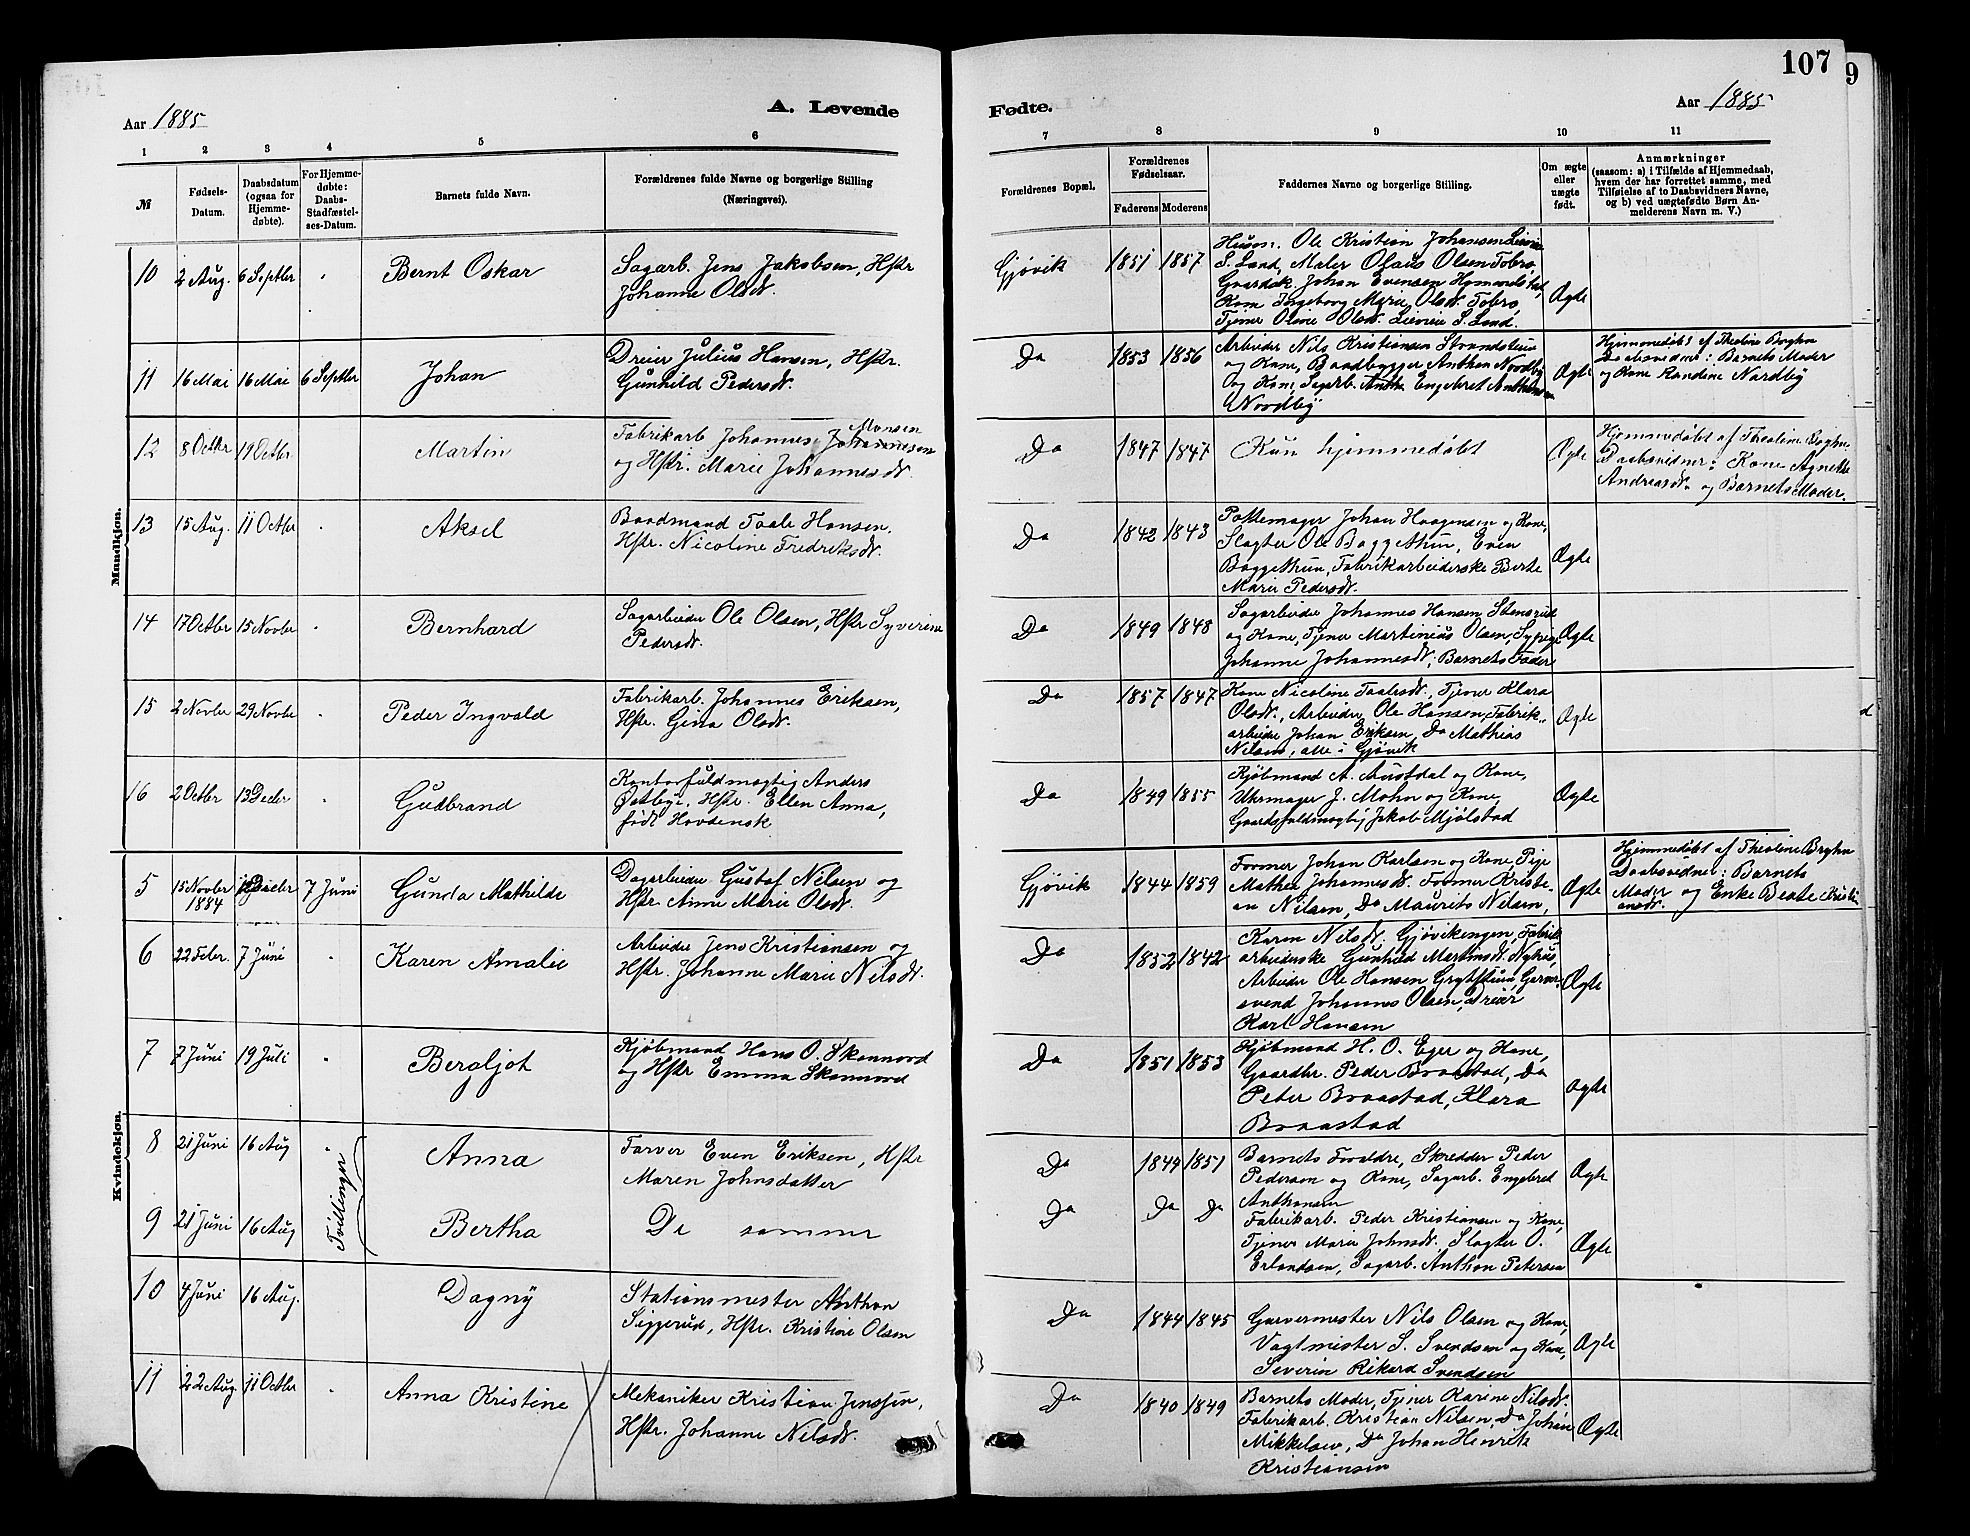 107
9
Aar 1885
A. Levende
Fødte.
Aar 1885
1 2 3 4 5 6 7 8 9 10 11
№
Fødsels-
Datum.
Daabsdatum
(ogsaa for
Hjemme-
døbte).
For Hjemme-
døbte:
Daabs-
Stadfæstel-
ses-Datum.
Barnets fulde Navn.
Forældrenes fulde Navne og borgerlige Stilling
(Næringsvei).
Forældrenes Bopæl.
Forældrenes
Fødselsaar.
Faderens Moderens
Faddernes Navne og borgerlige Stilling.
Om ægte
eller
uægte
født.
Anmærkninger
(saasom: a) i Tilfælde af Hjemmedaab,
hvem der har forrettet samme, med
Tilføielse af to Daabsvidners Navne,
og b) ved uægtefødte Børn An-
melderens Navn m. V.)
Mandkjøn.
10 2 Aug. 6 Septbr Bernt Oskar
Sagarb. Jens Jakobsen, Hstr
Johanne Olsdr.
Gjøvik 1851 1857
Husm. Ole Kristian Johansen
S. Land, Maler Olaus Olsen Tobro,
Gaardsk. Johan Evensen
Kone Ingeborg Marie Olsdr. Tobro,
Tjener Oline Olsdr. S. Land.
Ægte
11 16 Mai 16 Mai 6 Septbr Johan
Dreier Julius Hansen, Hstr.
Gunhild Pedersdr.
Do 1853 1856
Arbeider Nils Kristiansen
og Kone, Baadbygger Anthon Nordby
og Kone, Sagarb. Engebret Anthonsen
Nordby
Ægte
Hjemmedøbt af Theoline Bryhn
Daabsvidner: Barnets Moder
og Kone Randine Nordby
12 8 Octbr 19 Octbr Martin
Monsen
Fabrikarb Johannes Johannesen
og Hstr. Marie Johannesdr.
Do 1847 1847
Kun hjemmedøbt
Ægte
Hjemmedøbt af Theoline Bryhn
Daabsvidner: Kone Agnethe
Andreasdr. og Barnets Moder.
13 15 Aug. 11 Octbr Aksel
Baadmand Taale Hansen.
Hstr. Nicoline Fredriksdr.
Do 1842 1843
Pottemager Johan Haagensen og Kone,
Slagter Ole Baggethun, Even
Baggethun, Fabrikarbeiderske Berte
Marie Pedersdr.
Ægte
14 17 Octbr 15 Novbr Bernhard
Sagarbeider Ole Olsen, Hstr Syverine
Pedersdr.
Do 1849 1848
Sagarbeider Johannes Hansen Stensrud
og Kone, Tjener Martinius Olsen, Sypige
Johanne Johannesdr., Barnets Fader
Ægte
15 2 Novbr 29 Novbr Peder Ingvald
Fabrikarb. Johannes Eriksen,
Hstr. Gina Olsdr.
Do 1857 1847
Kone Nicoline Taalesdr., Tjener Klara
Olsdr., Arbeider Ole Hansen, Fabrik-
arbeider Johan Eriksen, Do Mathias
Nilsen, alle i Gjøvik
Ægte
16 2 Octbr 13 Decbr Gudbrand
Kontorfuldmægtig Anders
Østbye, Hstr. Ellen Anna,
født Hovdensk
Do 1849 1855
Kjøbmand A. Austdal og Kone,
Uhrmager J. Mohn og Kone,
Gaardsfuldmægtig Jakob Mjølstad
Ægte
Kvindekjøn.
5 15 Novbr Decbr 7 Juni Gunda Mathilde
1884
Dagarbeider Gustaf Nilsen og
Hstr. Anne Marie Olsdr.
Gjøvik 1844 1859
Former Johan Karlsen og Kone, Pige
Mathea Johannesdr. Former Kristi-
an Nilsen, Do Maurits Nilsen,
Ægte
Hjemmedøbt af Theoline Bryhn
Daabsvidner: Barnets
Moder og Enke Beate Kristi-
ansdr.
6 22 Febr. 7 Juni Karen Amalie
Arbeider Jens Kristiansen og
Hstr. Johanne Marie Nilsdr.
Do 1852 1842
Karen Nilsdr. Gjøvikengen, Fabrik-
arbeiderske Gunhild Martinsdr. Nyhus,
Arbeider Ole Hansen Grytthun, Garver-
svend Johannes Olsen, Dreier
Karl Hansen
Ægte
7 7 Juni 19 Juli Bergljot
Kjøbmand Hans O. Skonnord
og Hstr Emma Skonnord
Do 1851 1853
Kjøbmand H. O. Eger og Kone,
Gaardbr. Peder Braastad, Do
Peter Braastad, Klara
Braastad
Ægte
Tvillinger
8 21 Juni 16 Aug Anna
Farver Even Eriksen, Hstr
Maren Johnsdatter
Do 1849 1851
Barnets Forældre, Skredder Peder
Pedersen og Kone, Sagarb. Engebret
Anthonsen
Ægte
9 21 Juni 16 Aug Bertha
De samme
Do Do Do
Fabrikarb. Peder Kristiansen og Kone,
Tjener Marie Johnsdr. Slagter O.
Erlandsen, Sagarb. Anthon Petersen
Ægte
10 4 Juni 16 Aug. Dagny
Stationsmester Anthon
Siggerud, Hstr. Kristine Olsen
Do 1844 1845
Garvermester Nils Olsen og Kone,
Vagtmester S. Svendsen og Kone,
Severin Rikard Svendsen
Ægte
11 22 Aug. 11 Octbr Anna Kristine
Mekaniker Kristian Jenssen,
Hstr. Johanne Nilsdr.
Do 1840 1849
Barnets Moder, Tjener Karine Nilsdr.
Fabrikarb. Kristian Nilsen, Do Johan
Mikkelsen, Do Johan Henrik
Kristiansen
Ægte